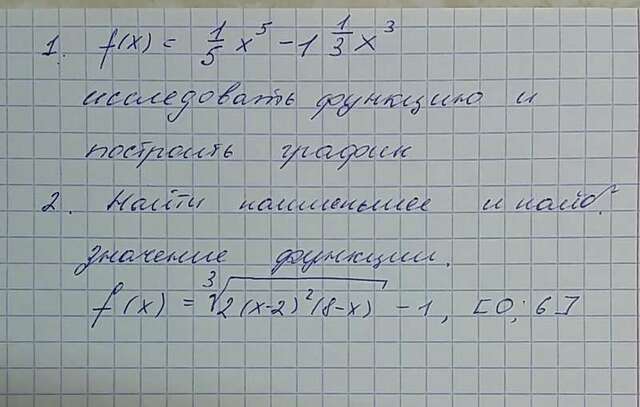 1. f(x) = 1/5 x⁵ - 1 1/3 x³
исследовать функцию и
построить график
2. Найти наименьшее и наиб.
значение функции.
f(x) = ∛(2(x-2)²(8-x)) - 1, [0; 6]